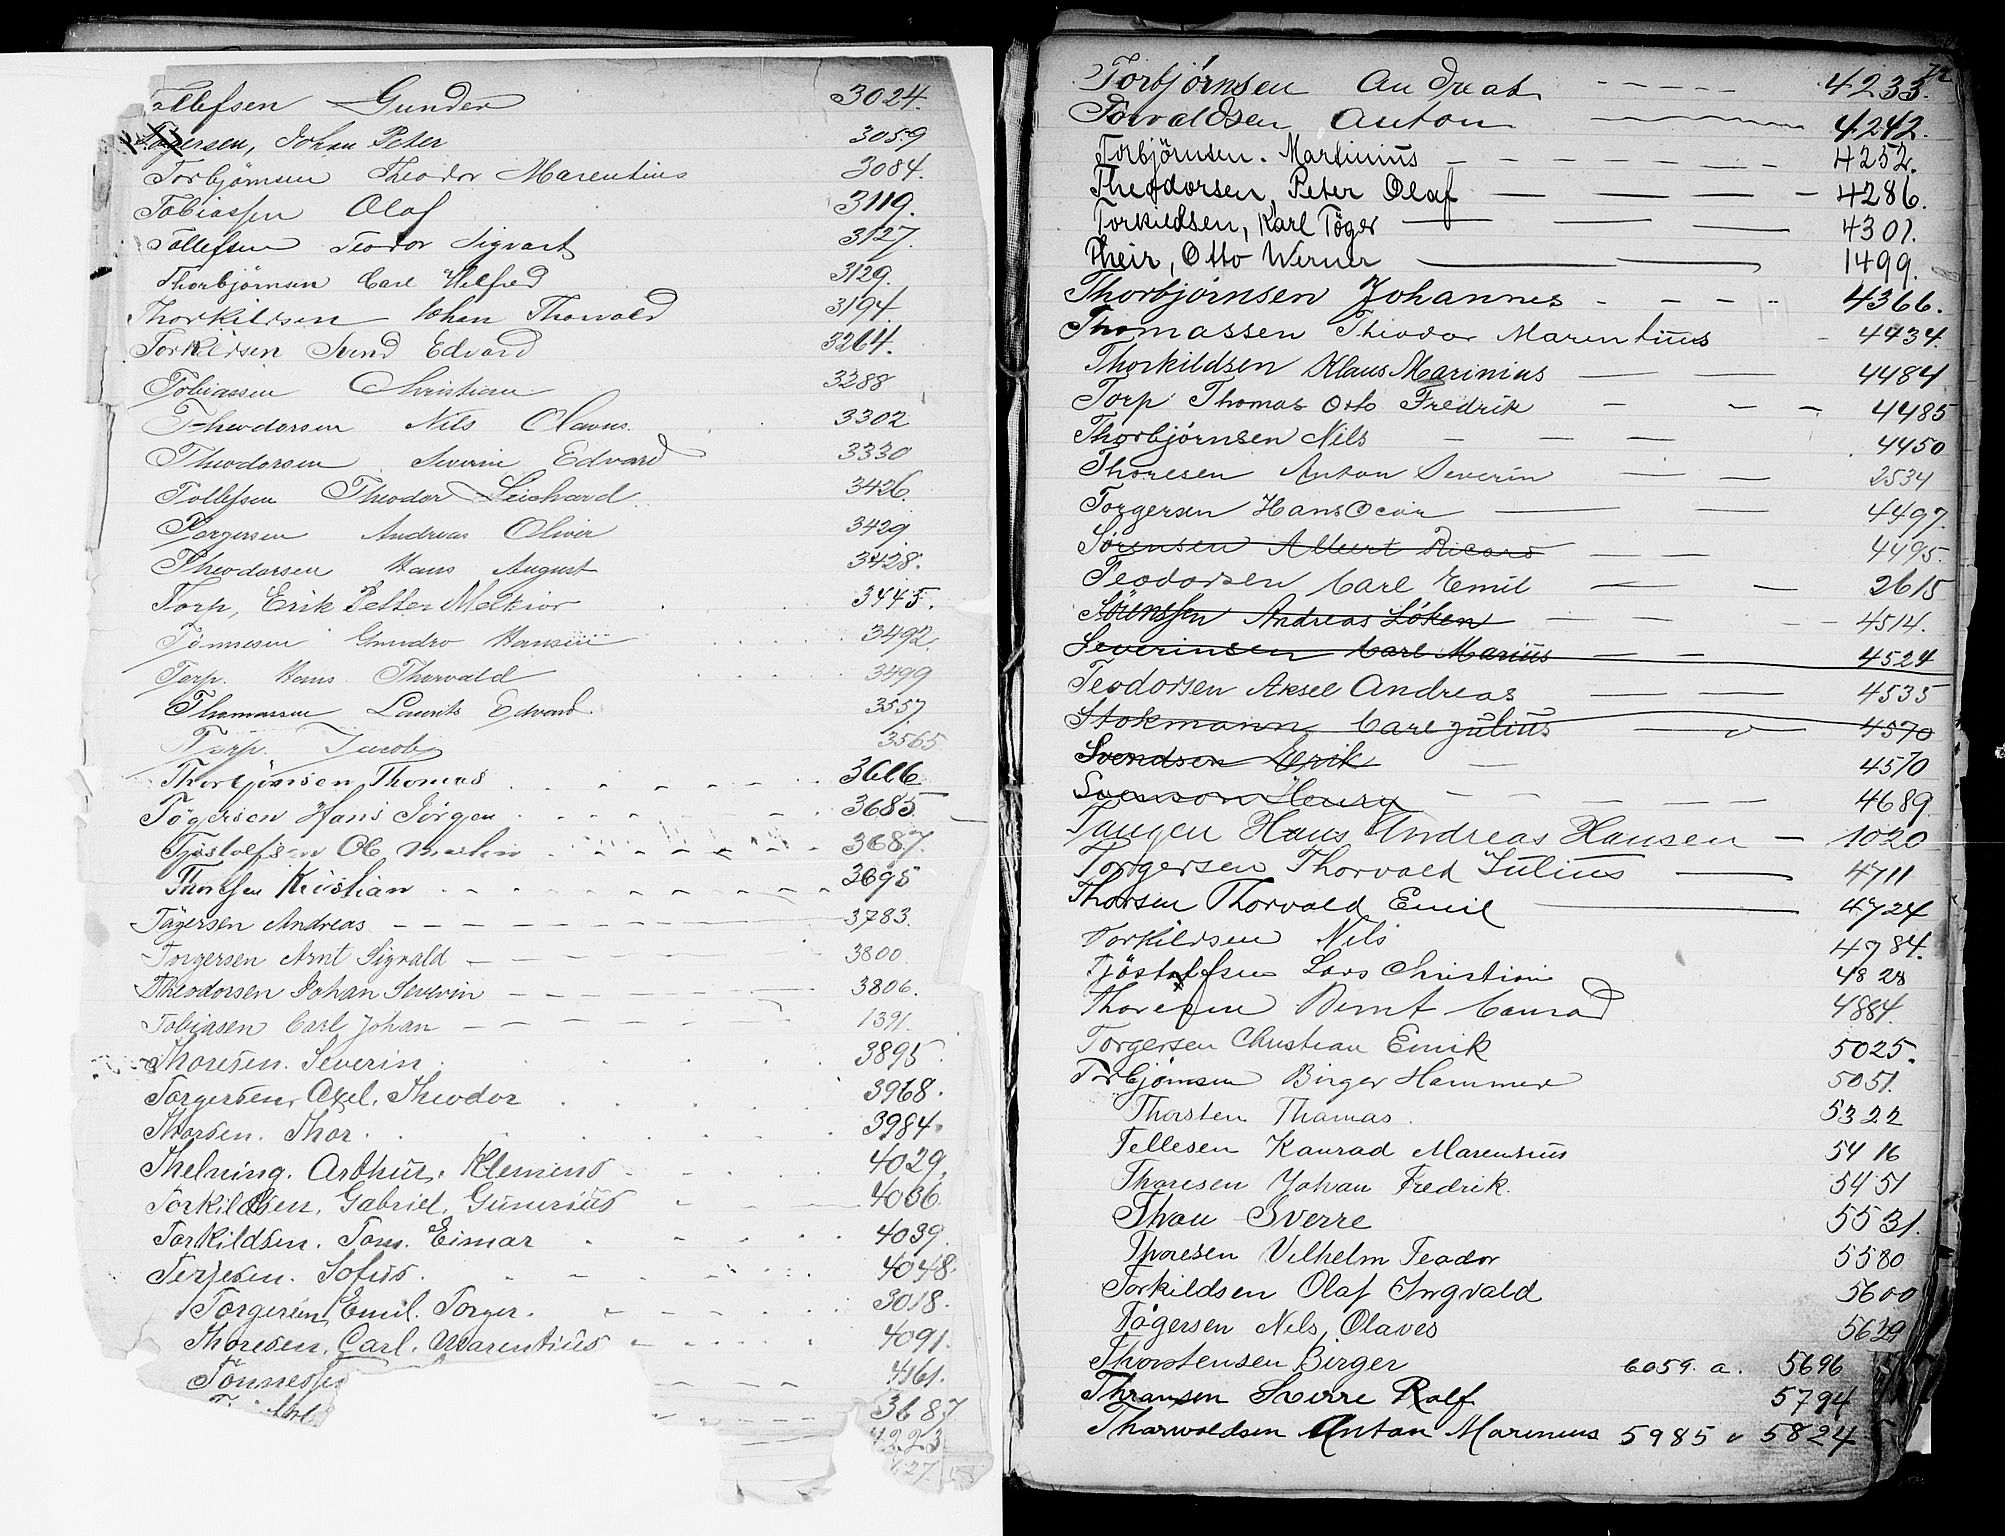 Tollefsen Gunder 3024.
Tögersen, Johan Peter 3059
Torbjörnsen Theodor Marentius 3084.
Tobiassen Olaf 3119.
Tollefsen Teodor Sigvart 3127.
Thorbjörnsen Carl Wilfred 3129.
Thorkildsen Johan Thorvald 3194.
Torkildsen Svend Edvard 3264.
Tobiassen Christian 3288
Theodorsen Nils Olavus 3302
Theodorsen Severin Edvard 3330
Tollefsen Theodor Leichard 3426.
Torgersen Andreas Oliver 3429
Theodorsen Hans August 3428.
Torp, Erik Petter Melkior 3445.
Tönnesen Gundro Hansen 3492.
Torp. Hans Thorvald 3499
Thomassen Laurits Edvard 3557
Torp. Jacob 3565
Thorbjörnsen, Thomas 3666
Tögersen Hans Jörgen 3685
Tjöstolfsen Ole Martin 3687.
Tønsen Kristian 3695
Tögersen Andreas 3783.
Torgersen Arnt Sigvald 3800.
Theodorsen Johan Severin 3806.
Tobiasen Carl Johan 1391.
Thoresen. Severin. 3895.
Torgersen, Axel. Theodor 3968.
Thorsen. Thor. 3984.
Thelning. Arthur. Klemens 4029.
Torkildsen. Gabriel. Gunerius 4036.
Torkildsen. Tom. Eimar 4039.
Terjesen. Sofus. 4048.
Torgersen, Emil. Torger. 3018.
Thoresen, Carl. Marentius 4091.
Tönnessen 4161.
3687
4223
72
Torbjørnsen Andreas 4233.
Torvaldsen Anton 4242.
Torbjörnsen. Martinius 4252.
Theodorsen, Peter Olaf 4286.
Torkildsen, Karl Töger 4301.
Their, Otto Werner 1499.
Thorbjørnsen Johannes 4366.
Thomassen Theodor Marentius 4434.
Thorkildsen Klaus Marinius 4484
Torp Thomas Otto Fredrik 4485
Thorbjørnsen Nils 4450
Thoresen Anton Severin 2534
Torgersen Hans Oscar 4497.
Sørensen Albert Ricard 4495.
Teodorsen Carl Emil 2615
Sörenssen Andreas Löken 4514.
Severinsen Carl Marius 4524
Teodorsen Aksel Andreas 4535
Stokmann Carl Julius 4570
Svendsen Erik 4570
Svenson Henry 4689
Tangen Hans Andreas Hansen 1020
Torgersen Thorvald Julius 4711
Thorsen Thorvald Emil 4724
Torkildsen Nils 4784.
Tjöstolfsen Lars Christian 4828
Thoresen Bernt Conrad 4884.
Torgersen Christian Emik 5025.
Torbjørnsen Birger Hammer 5051.
Thorsten Thomas. 5322
Tellesen Konrad Marensius 5416
Thoresen Johan Fredrik. 5451
Thou Sverre 5531.
Thoresen Vilhelm Teodor 5580
Torkildsen Olaf Ingvald 5600
Tögersen Nils, Olaves 5629
Thorstensen Birger 6059. a. 5696
Thransen Sverre Rolf 5794
Thorwaldsen Anton Marinius 5985 v 5824